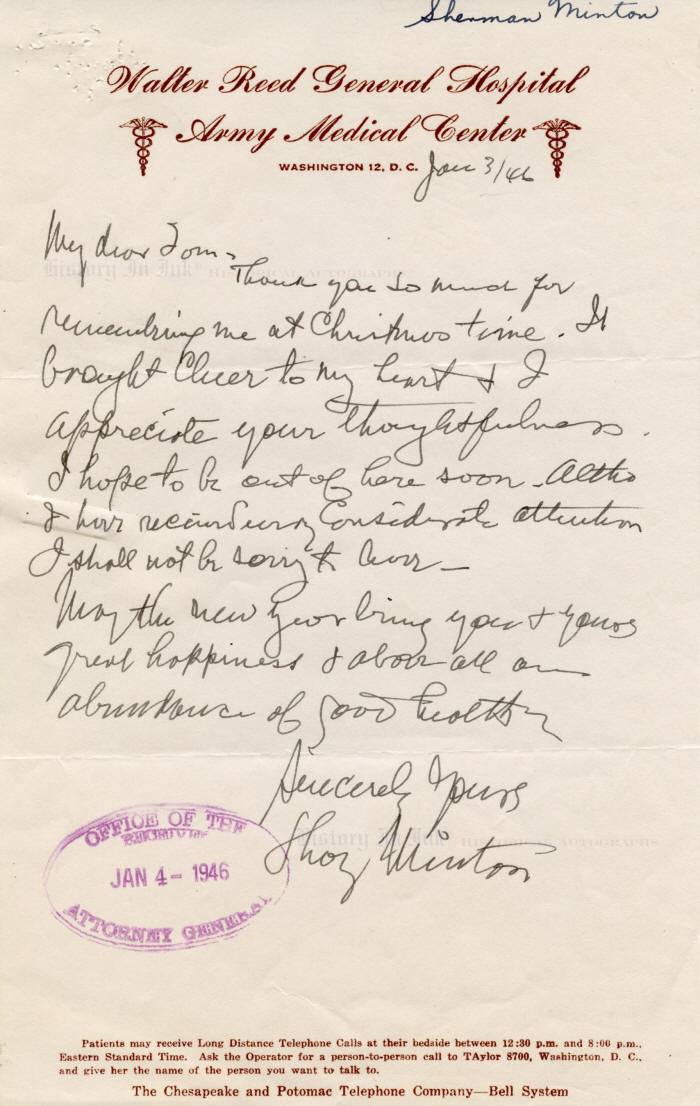 Sherman Minton
Walter Reed General Hospital
Army Medical Center
WASHINGTON 12, D. C. Jan 3/46
My dear Tom -
History In Ink® HISTORICAL AUTOGRAPHS
Thank you so much for
remembering me at Christmas time. It
brought Cheer to my heart & I
appreciate your thoughtfulness.
I hope to be out of here soon - Altho
I have received every Considerate attention
I shall not be sorry to leave -
May the new year bring you & yours
great happiness & above all an
abundance of good health
Sincerely Yours
Shay Minton
History In Ink® HISTORICAL AUTOGRAPHS
OFFICE OF THE
RECEIVED
JAN 4 - 1946
ATTORNEY GENERAL
Patients may receive Long Distance Telephone Calls at their bedside between 12:30 p.m. and 8:00 p.m.,
Eastern Standard Time. Ask the Operator for a person-to-person call to TAylor 8700, Washington, D. C.,
and give her the name of the person you want to talk to.
The Chesapeake and Potomac Telephone Company—Bell System